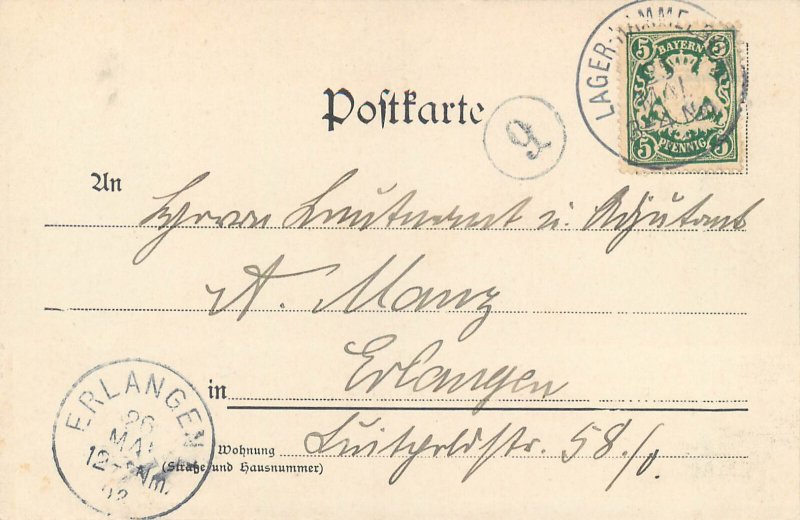 LAGER-HAMMELBURG
5 BAYERN 5
MAI
Nm
5 PFENNIG 5
Postkarte
An
Herrn Leutnant u. Adjutant
A. Manz
in Erlangen
Wohnung Luitpoldstr. 58/0.
(Straße und Hausnummer)
ERLANGEN
26
MAI
12-
Nm.
02